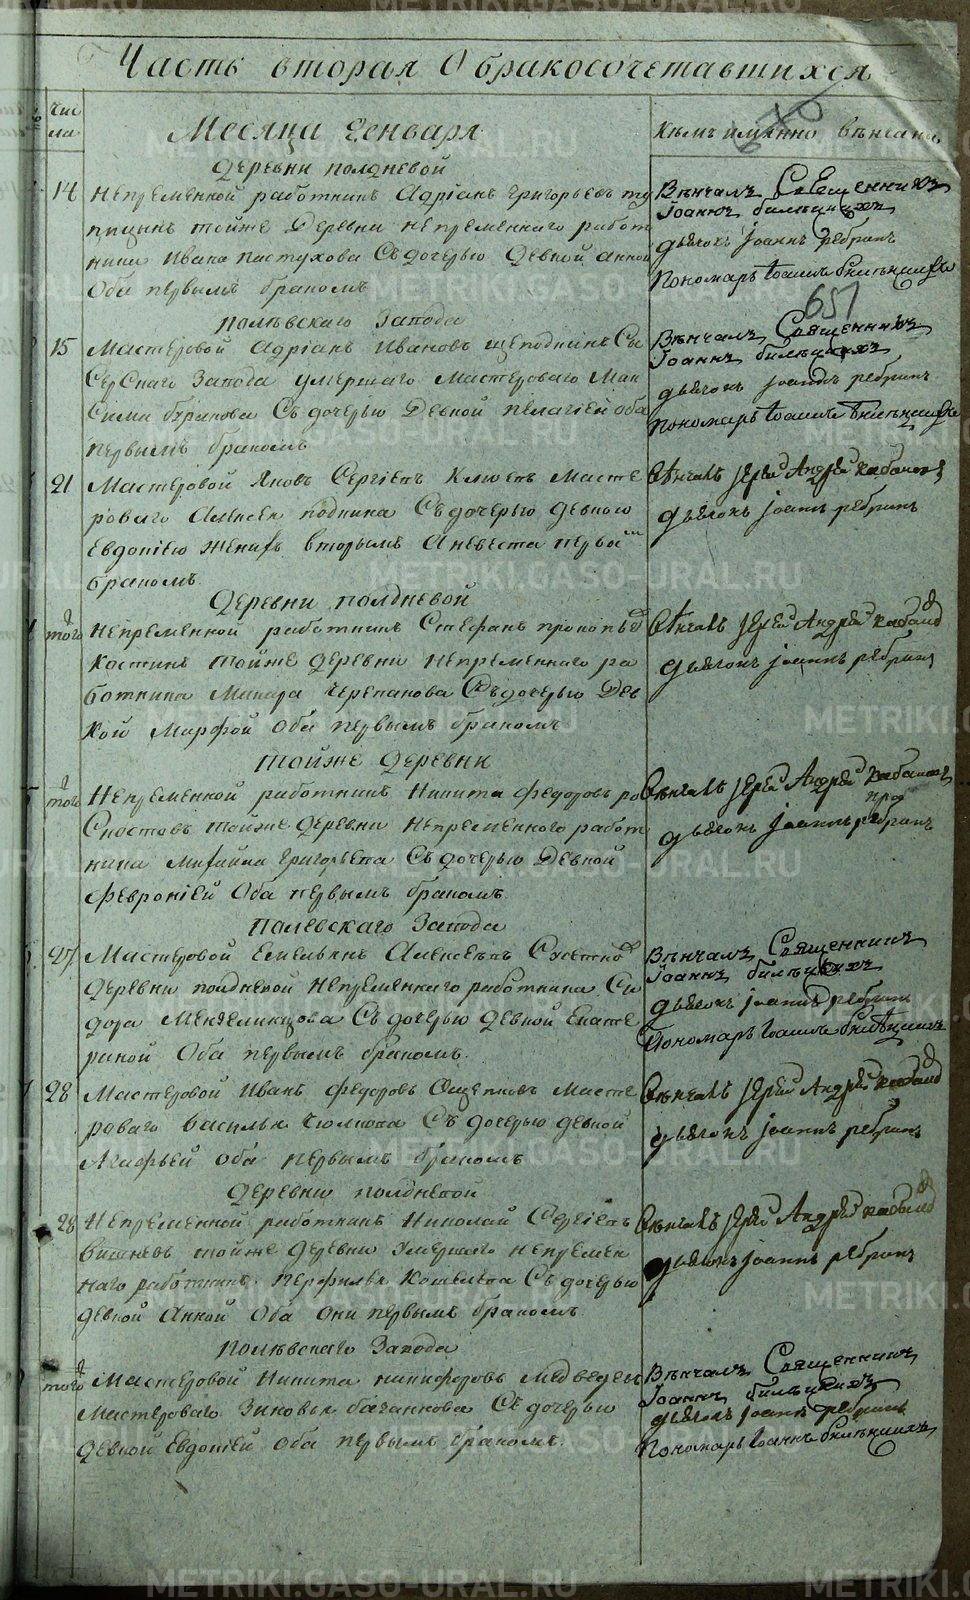 Часть вторая О бракосочетавшихся
Чис
ла
Месяца Генваря
Кѣмъ имянно вѣнчаны
651
Деревни полдневой
14 Непременной работникъ Адрїанъ Григорьевъ ту
пицинъ тойже Деревни непременнаго работ
ника Ивана пастухова Съ дочерью Девкой анной
Оба первымъ бракомъ
Вѣнчалъ Священникъ
Іоаннъ
дьячокъ Іоаннъ ребринъ
Пономарь
Полѣвскаго Завода
15 Мастеровой Адрїанъ Ивановъ щепочкинъ Сы
Серскаго Завода умершаго Мастероваго Мак
Сима буракова Съ дочерью Девкой пелагїей оба
первымъ бракомъ
Вѣнчалъ Священникъ
Іоаннъ
дьячокъ Іоаннъ ребринъ
Пономарь
21 Мастеровой Яковъ Сергїевъ Клюевъ Масте
роваго Алексея Съ дочерью девкою
Евдокїею женихъ вторымъ А невеста первы
бракомъ
Вѣнчалъ Іерей Андрей
дьячокъ Іоаннъ ребринъ
Деревни полдневой
того Непременной работникъ Стефанъ прокопьев
Костинъ тойже деревни непременнаго ра
ботника Макара Черепанова Съ дочерью Дев
кой Марфой Оба первымъ бракомъ
Вѣнчалъ Іерей Андрей
дьячокъ Іоаннъ ребринъ
Тойже Деревни
того Непременной работникъ Никита Федоровъ ро
Скостовъ тойже деревни Непременнаго работ
ника Михайла Григорьева Съ дочерью Девкой
Февронїей Оба первымъ бракомъ
Вѣнчалъ Іерей Андрей
дьячокъ Іоаннъ ребринъ
Полевскаго Завода
27 Мастеровой Емельянъ Алексѣевъ
деревни полдневой Непременнаго работника Си
дора Съ дочерью девкой Екате
риной Оба первымъ бракомъ
Вѣнчалъ Священникъ
Іоаннъ
дьячокъ Іоаннъ ребринъ
Пономарь
28 Мастеровой Иванъ Федоровъ Ощепковъ Масте
роваго василья Съ дочерью девкой
Агафьей оба первымъ бракомъ
Вѣнчалъ Іерей Андрей
дьячокъ Іоаннъ ребринъ
Деревни полдневой
28 Непременной работникъ Николай Сергїевъ
тойже деревни Умершаго непремен
наго работника Перфилья Кошелева Съ дочерью
девкой Анной Оба они первымъ бракомъ
Вѣнчалъ Іерей Андрей
дьячокъ Іоаннъ ребринъ
Полѣвскаго Завода
того Мастеровой Никита никифоровъ медведев
Мастероваго Зиновья Съ дочерью
девкой Евдокїей Оба первымъ бракомъ
Вѣнчалъ Священникъ
Іоаннъ
дьячокъ Іоаннъ ребринъ
Пономарь
METRIKI.GASO-URAL.RU